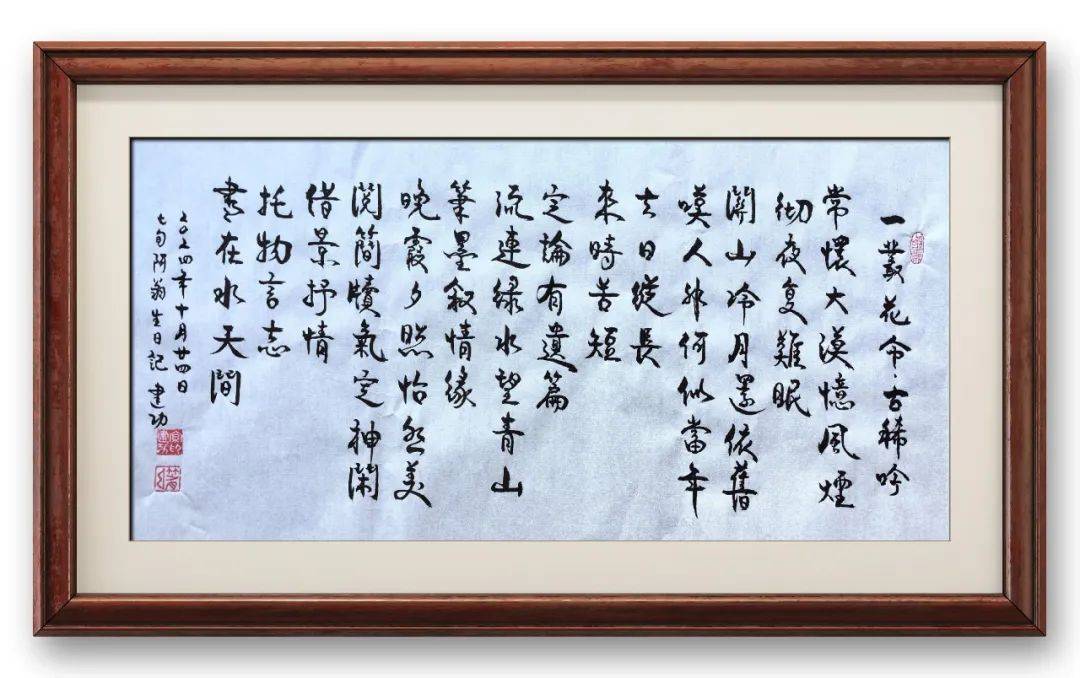 一叢花令·古稀吟
常懷大漠憶風煙
彻夜复難眠
關山冷月還依舊
嘆人非何似當年
去日縱長
來時苦短
定論有遺篇
流連綠水望青山
筆墨敘情緣
晚霞夕照怡然美
閱簡牘氣定神閑
借景抒情
托物言志
書在水天間
二〇二四年十月廿四日
七旬阿翁生日記 建功